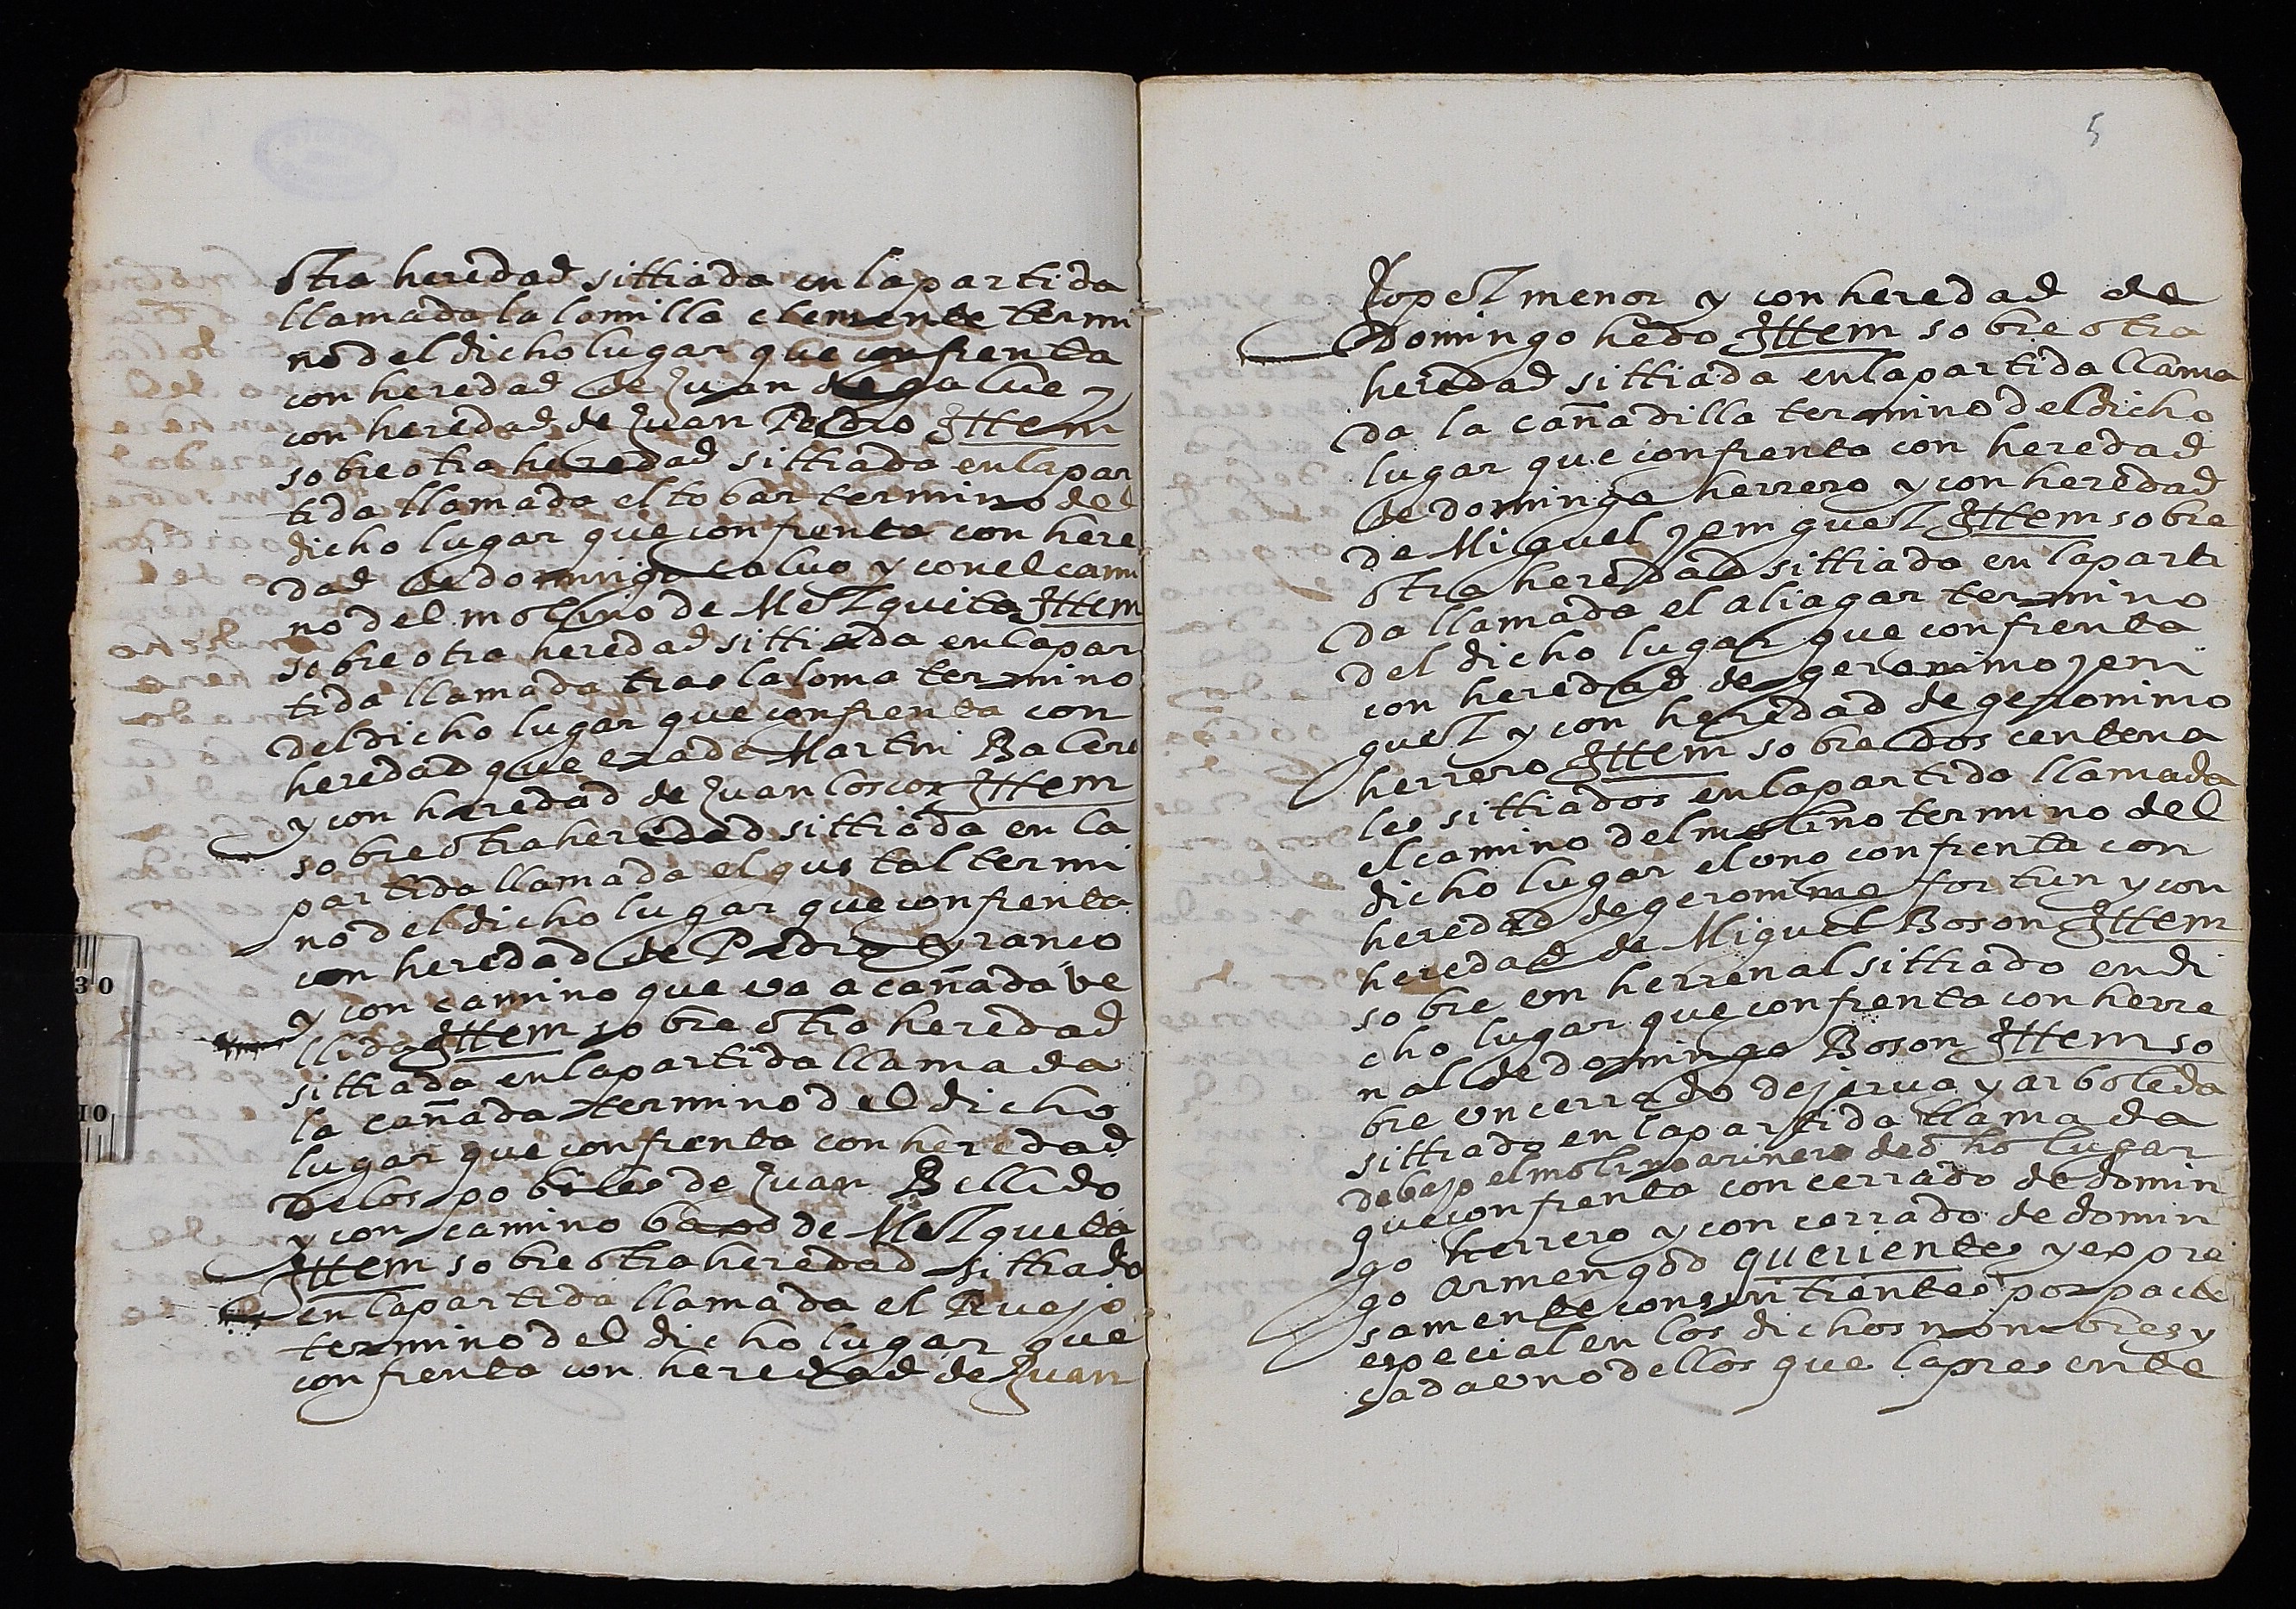 otra heredad sittiada en la partida
llamada la lomilla clemente termi
no del dicho lugar que confrenta
con heredad de Juan de galue y
con heredad de Juan Pedro Ittem
sobre otra heredad sittiada en la par
tida llamada el tobar termino del
dicho lugar que confrenta con here
dad de domingo caluo y con el cami
no del molino de Mezquita Ittem
sobre otra heredad sittiada en la par
tida llamada tras la loma termino
del dicho lugar que confrenta con
heredad que era de Martin Balero
y con heredad de Juan Coscox Ittem
sobre otra heredad sittiada en la
partida llamada el gustal termi
no del dicho lugar que confrenta
con heredad de Pedro Franco
y con camino que va a cañada ve
llida Ittem sobre otra heredad
sittiada en la partida llamada
la cañada termino del dicho
lugar que confrenta con heredad
de los pobres de Juan Bellido
y con camino baxo de Mezquita
Ittem sobre otra heredad sittiada
en la partida llamada el
termino del dicho lugar que
confrenta con heredad de Juan
5
Lopez menor y con heredad de
Domingo hedo Ittem sobre otra
heredad sittiada en la partida llama
da la cañadilla termino del dicho
lugar que confrenta con heredad
de domingo herrero y con heredad
de Miguel yemguez Ittem sobre
otra heredad sittiada en la parti
da llamada el aliagar termino
del dicho lugar que confrenta
con heredad de geronimo yeni
guez y con heredad de geronimo
herrero Ittem sobre dos centena
les sittiados en la partida llamada
el camino del molino termino del
dicho lugar el uno confrenta con
heredad de geronimo fortun y con
heredad de Miguel Boson Ittem
sobre un herrenal sittiado en di
cho lugar que confrenta con herre
nal de domingo Boson Ittem so
bre un cerrado de jerua y arboleda
sittiado en la partida llamada
debajo el molino arinero de dho lugar
que confrenta con cerrado de domin
go herrero y con cerrado de domin
go Armengod querientes y expre
samente consintientes por pacto
especial en los dichos nombres y
cada uno dellos que la presente